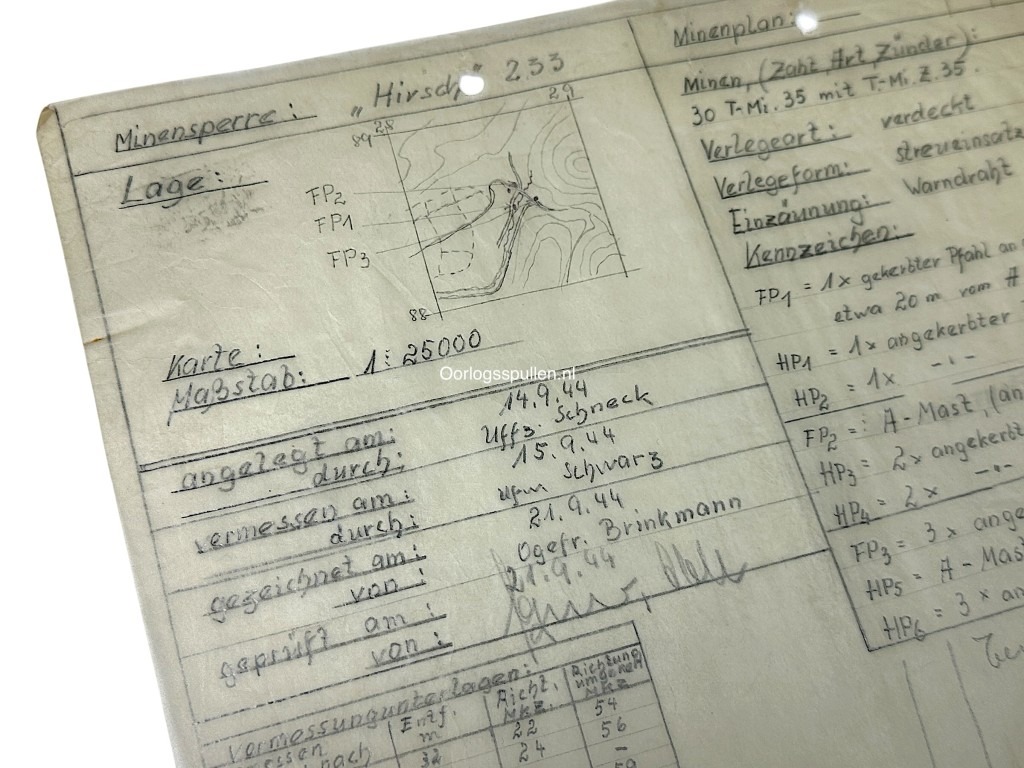 Minensperre: „Hirsch“ 233
Lage:
28 29
89
FP2
FP1
FP3
88
Karte:
Maßstab: 1:25000
angelegt am: 14.9.44
durch: Uffz. Schneck
vermessen am: 15.9.44
durch: Schwarz
gezeichnet am: 21.9.44
von: Ogefr. Brinkmann
geprüft am: 21.9.44
von:
Vermessungunterlagen:
Entf. m
Richt. MKZ.
Richtung umgekeh MKZ
nach
32 22 54
24 56
-
Minenplan:
Minen, (Zahl, Art, Zünder):
30 T-Mi. 35 mit T-Mi. Z. 35.
Verlegeart: verdeckt
Verlegeform: streueinsatz
Einzäunung: Warndraht
Kennzeichen:
FP1 = 1x gekerbter Pfahl an
etwa 20 m vom A
HP1 = 1x angekerbter
HP2 = 1x -"-
FP2 =: A-Mast, (an
HP3 = 2x angekerbt
HP4 = 2x -"-
FP3 = 3x ange
HP5 = A-Mas
HP6 = 3x an
Oorlogsspullen.nl